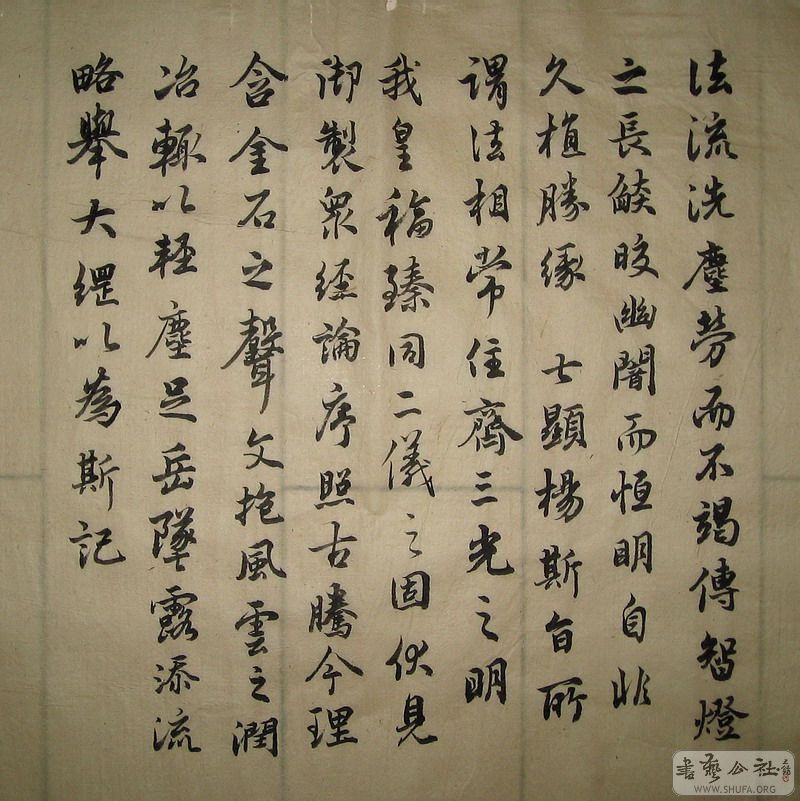 法流洗塵勞而不竭傳智燈
之長焰皎幽闇而恒明自非
久植勝緣 顯楊斯旨所
謂法相常住齊三光之明
我皇福臻同二儀之固伏見
御製眾經論序照古騰今理
含金石之聲文抱風雲之潤
冶輒以輕塵足岳墜露添流
略舉大綱以為斯記
書藝公社
WWW.SHUFA.ORG